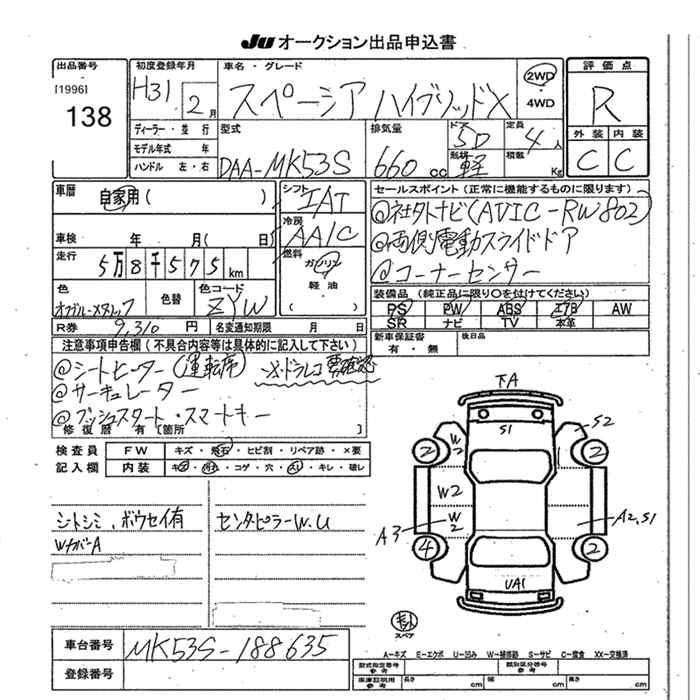 JU オークション出品申込書
出品番号
[1996]
138
初度登録年月
H31 2月
車名・グレード
スペーシア ハイブリッドX
2WD
・
4WD
評価点
R
外装 内装
C C
ディーラー・並行
モデル年式 年
ハンドル 左・右
型式
DAA-MK53S
排気量
660 cc
ドア
5D
形状
軽
定員
4人
積載
Kg
車歴
自家用( )
車検 年 月( 日)
走行
5万8千575km
色
色替
色コード
ZYW
R券 9,310円
名変通知期限 月 日
シフト
IAT
冷房
AAC
燃料
ガソリン
軽油
( )
セールスポイント(正常に機能するものに限ります)
@社外ナビ(AVIC-RW802)
@両側電動スライドドア
@コーナーセンサー
装備品(純正品に限り○を付けてください)
PS PW ABS エアB AW
SR ナビ TV 本革
新車保証書
有・無
後日品
注意事項申告欄(不具合内容等は具体的に記入して下さい)
@シートヒーター(運転席) ※ドラレコ要確認
@サーキュレーター
@プッシュスタート・スマートキー
修復歴 有[箇所 ]
検査員
記入欄
FW キズ・飛石・ヒビ割・リペア跡・×要
内装 キズ・汚れ・コゲ・穴・スレ・キレ・破レ
シートシミ、ボウセイ有
WカバーA
センターピラーW.U
車台番号 MK53S-188635
登録番号
下A
S1
S2
2
W2
2
W2
W2
A3
A2,S1
4
2
UA1
スペア
A-キズ E-エクボ U-凹み W-補修跡 S-サビ C-腐食 XX-交換済
型式指定番号
参考
類別区分番号
参考
車庫証明用
参考
長さ cm
幅 cm
高さ cm